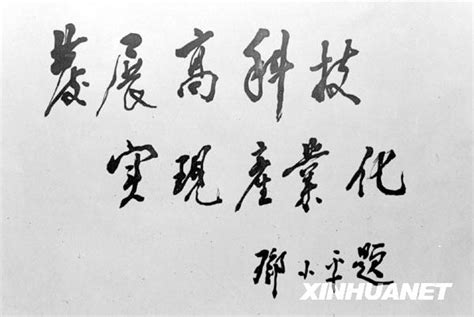 發展高科技
实現產業化
鄧小平題
XINHUANET